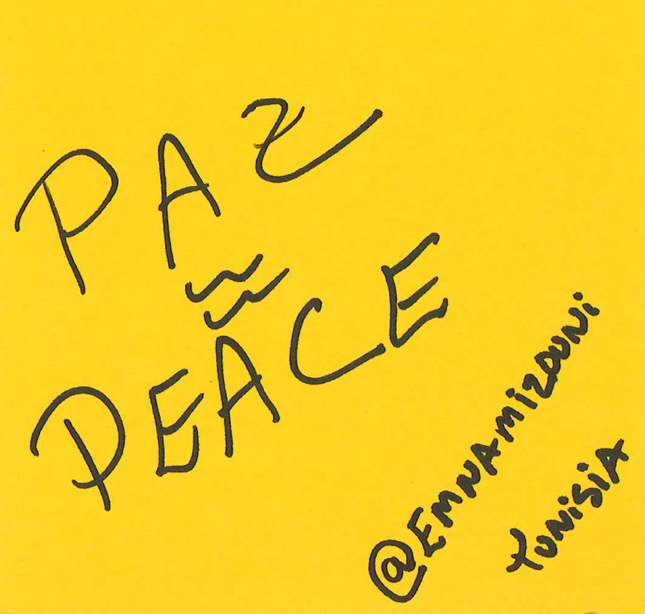 PAZ
≈
PEACE
@EMNAMIZOUNI
TUNISIA